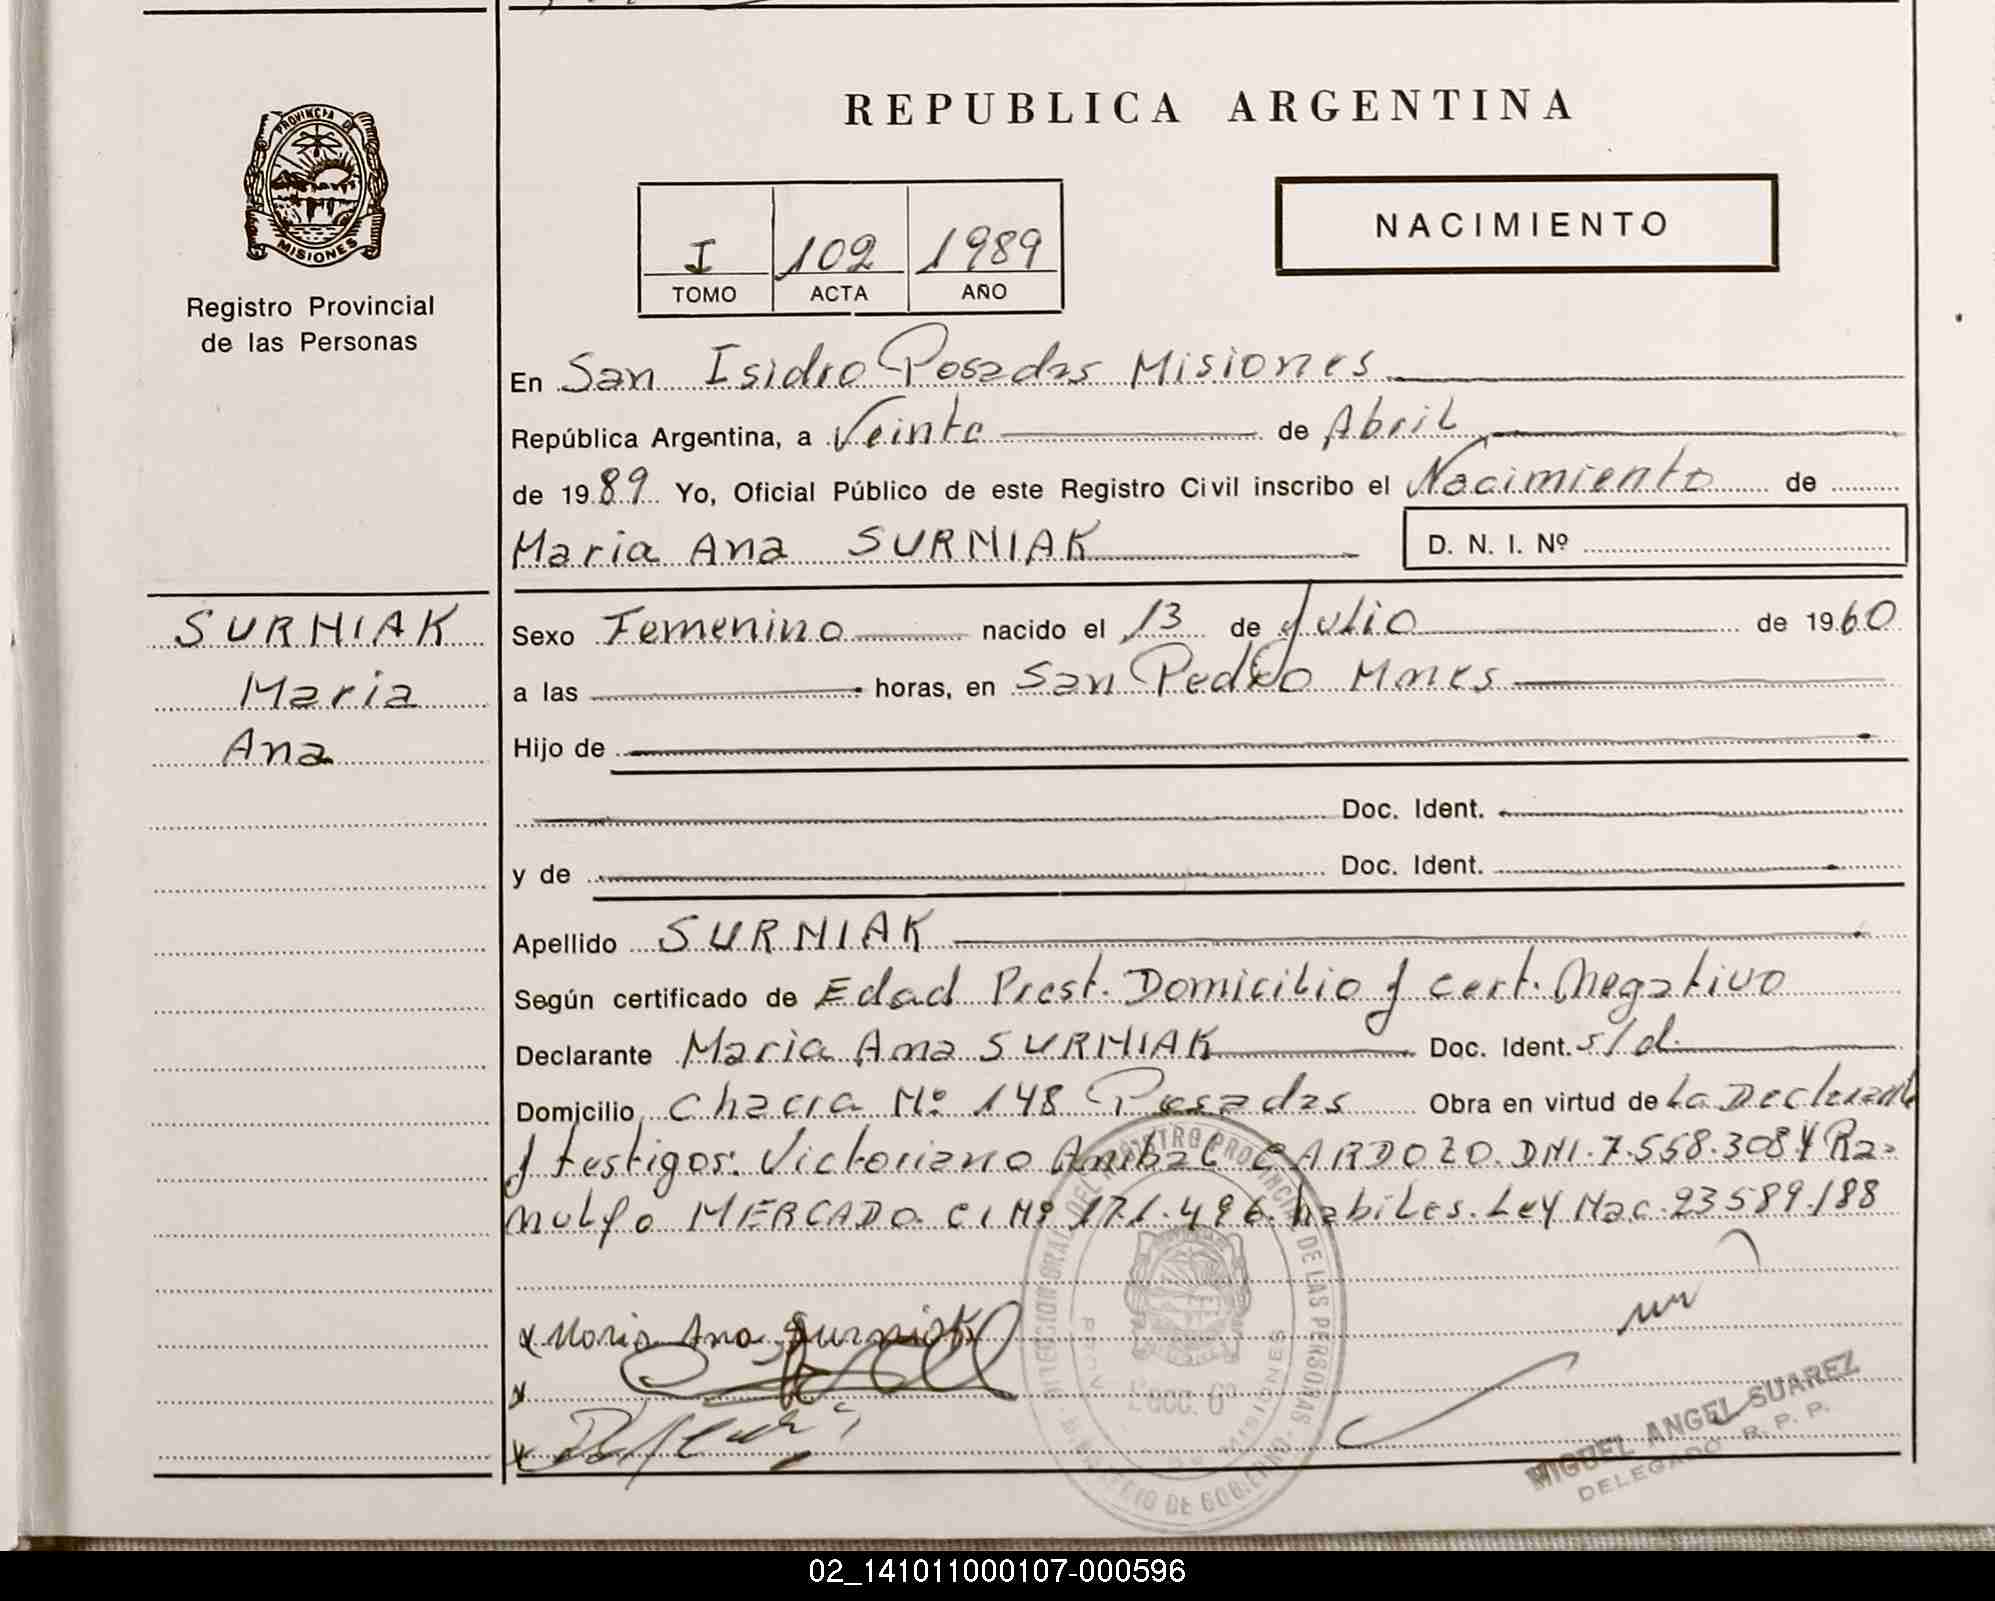 REPUBLICA ARGENTINA
PROVINCIA DE
MISIONES
Registro Provincial
de las Personas
I 102 1989
TOMO ACTA AÑO
NACIMIENTO
En San Isidro Posadas Misiones
República Argentina, a Veinte de Abril
de 1989 Yo, Oficial Público de este Registro Civil inscribo el Nacimiento de
Maria Ana SURNIAK
D. N. I. Nº
SURNIAK
Maria
Ana
Sexo Femenino nacido el 13 de Julio de 1960
a las horas, en San Pedro Mnes
Hijo de
Doc. Ident.
y de Doc. Ident.
Apellido SURNIAK
Según certificado de Edad Prest. Domicilio y cert. Negativo
Declarante Maria Ana SURNIAK Doc. Ident. s/d.
Domicilio Chacra Nº 148 Posadas Obra en virtud de La Declarante
y testigos: Victoriano Anibal CARDOZO. DNI. 7.558.308 y Ra-
nulfo MERCADO. CI Nº 171.496. habiles. Ley Nac. 23589/88
x Maria Ana Surniak
x
x
DEL REGISTRO PROVINCIAL DE LAS PERSONAS
MISIONES
DE GOBIERNO
MIGUEL ANGEL SUAREZ
DELEGADO R. P. P.
02_141011000107-000596